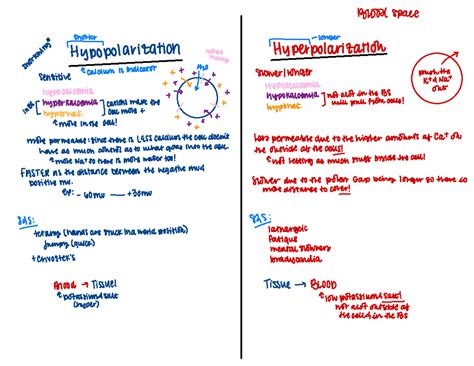 shorter
Hypopolarization
"shortening"
Sensitive
* calcium is indicator
hypocalcemia
hyperkalcemia
hypernat.
cations make the cell more +
↑ more in the cell!
H2O
more permeable: since there is LESS calcium the cell doesn't
have as much control as to what goes into the cell.
↑ more Na+ so there is more water too!
FASTER as the distance between the negative mv and
positive mv.
Ex: -60mv → +30mv
S/S:
tetany (hands are stuck in a weird position)
jumpy (quick)
+ chvostek's
Blood → Tissue!
↑ potassium salt
(hyper)
Blood space
longer
Hyperpolarization
Slower/longer
Hypercalcemia
hypokalcemia
hyponat.
not a lot in the BS
will pull from cells!
push the
K+ & Na+
out
Less permeable due to the higher amounts of Ca+ on
the outside of the cells!
↑ not letting as much inside the cell!
Slower due to the polar Gap being longer so there is
more distance to cover!
S/S:
lethargic
fatigue
mental slowness
bradycardia
Tissue → BLOOD
↑ low potassium salt!
not a lot outside of
the cells in the BS